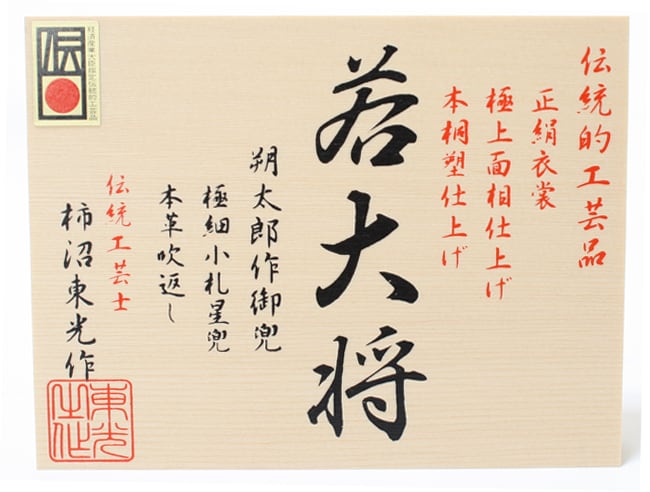 伝統的工芸品
正絹衣裳
極上面相仕上げ
本桐塑仕上げ
若大将
朔太郎作御兜
極細小札星兜
本革吹返し
伝統工芸士
柿沼東光作
経済産業大臣指定伝統的工芸品
伝
東光